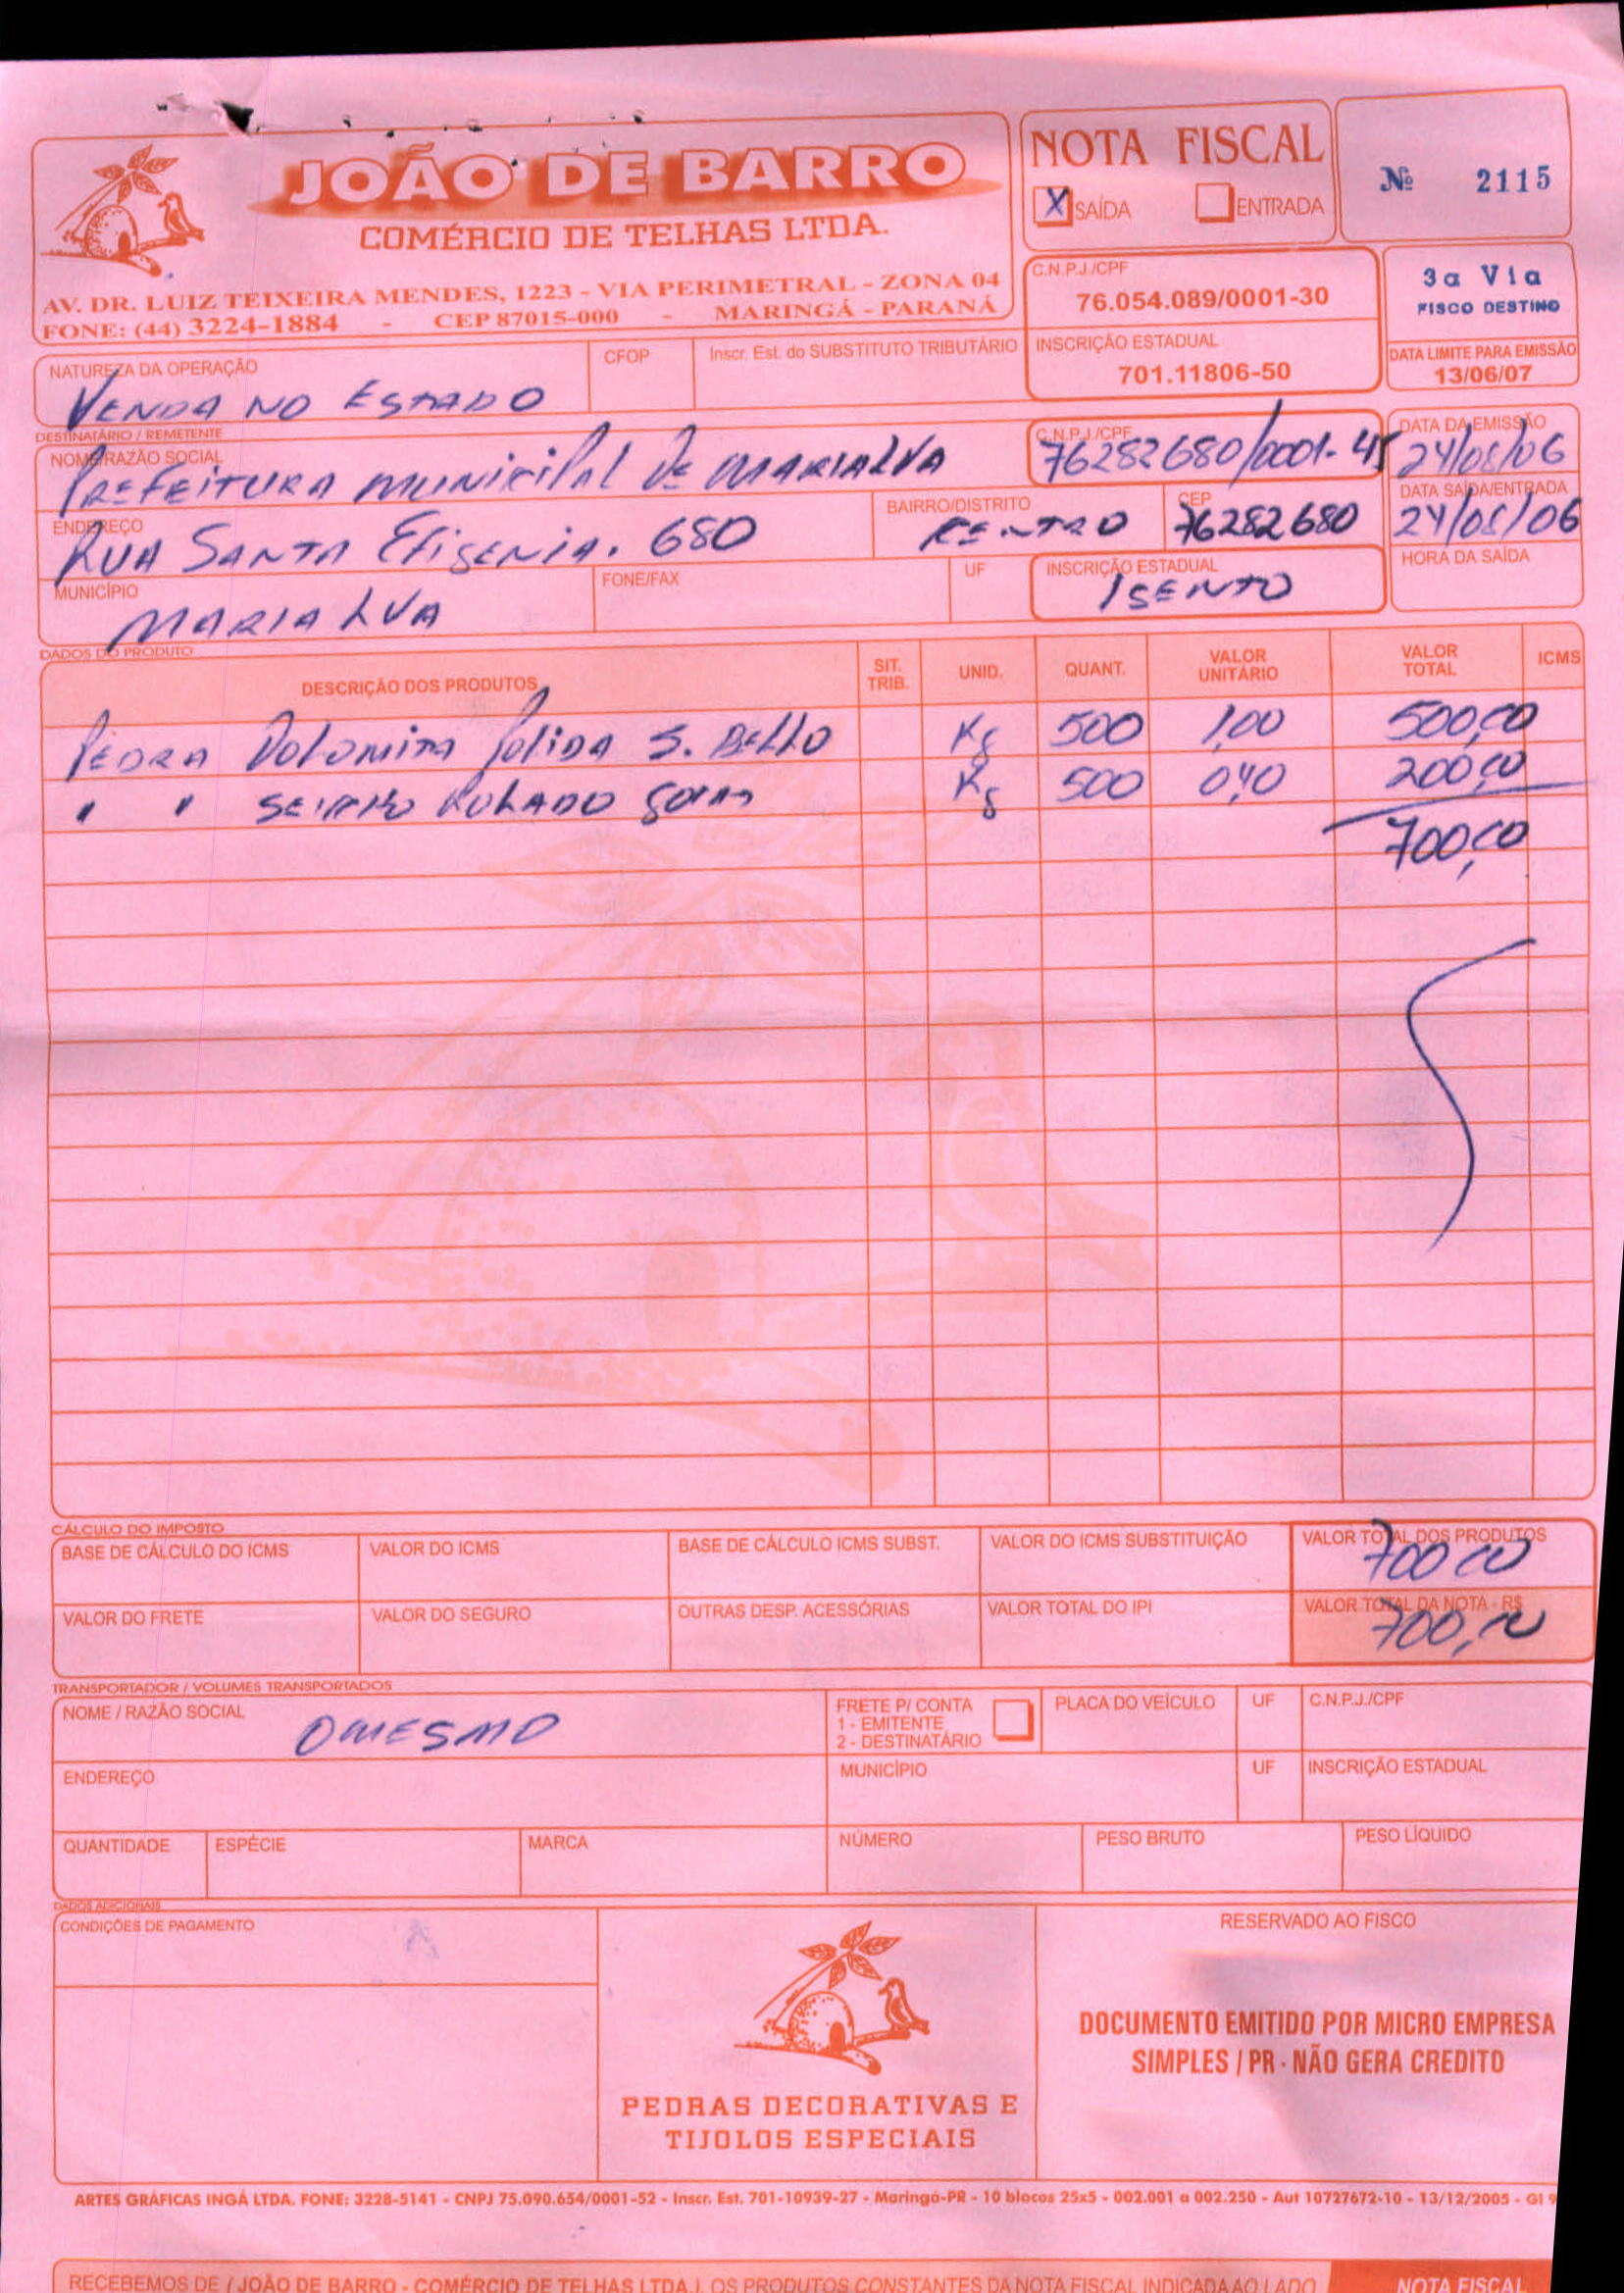 JOÃO DE BARRO
COMÉRCIO DE TELHAS LTDA.
AV. DR. LUIZ TEIXEIRA MENDES, 1223 - VIA PERIMETRAL - ZONA 04
FONE: (44) 3224-1884 - CEP 87015-000 - MARINGÁ - PARANÁ
NOTA FISCAL
X SAÍDA ENTRADA
Nº 2115
C.N.P.J./CPF
76.054.089/0001-30
3a Via
FISCO DESTINO
INSCRIÇÃO ESTADUAL
701.11806-50
DATA LIMITE PARA EMISSÃO
13/06/07
NATUREZA DA OPERAÇÃO CFOP Inscr. Est. do SUBSTITUTO TRIBUTÁRIO
VENDA NO ESTADO
DESTINATÁRIO / REMETENTE
NOME/RAZÃO SOCIAL C.N.P.J./CPF DATA DA EMISSÃO
PREFEITURA MUNICIPAL DE MARIALVA 76282680/0001-45 24/08/06
ENDEREÇO BAIRRO/DISTRITO CEP DATA SAÍDA/ENTRADA
RUA SANTA EFIGENIA. 680 CENTRO 76282680 24/08/06
MUNICÍPIO FONE/FAX UF INSCRIÇÃO ESTADUAL HORA DA SAÍDA
MARIALVA ISENTO
DADOS DO PRODUTO
DESCRIÇÃO DOS PRODUTOS SIT. TRIB. UNID. QUANT. VALOR UNITÁRIO VALOR TOTAL ICMS
PEDRA DOLOMITA POLIDA S. BELLO Kg 500 1,00 500,00
" " ROLADO Kg 500 0,40 200,00
700,00
CÁLCULO DO IMPOSTO
BASE DE CÁLCULO DO ICMS VALOR DO ICMS BASE DE CÁLCULO ICMS SUBST. VALOR DO ICMS SUBSTITUIÇÃO VALOR TOTAL DOS PRODUTOS
700 00
VALOR DO FRETE VALOR DO SEGURO OUTRAS DESP. ACESSÓRIAS VALOR TOTAL DO IPI VALOR TOTAL DA NOTA - R$
700,00
TRANSPORTADOR / VOLUMES TRANSPORTADOS
NOME / RAZÃO SOCIAL FRETE P/ CONTA PLACA DO VEÍCULO UF C.N.P.J./CPF
1 - EMITENTE
2 - DESTINATÁRIO
OMESMO
ENDEREÇO MUNICÍPIO UF INSCRIÇÃO ESTADUAL
QUANTIDADE ESPÉCIE MARCA NÚMERO PESO BRUTO PESO LÍQUIDO
DADOS ADICIONAIS
CONDIÇÕES DE PAGAMENTO
PEDRAS DECORATIVAS E
TIJOLOS ESPECIAIS
RESERVADO AO FISCO
DOCUMENTO EMITIDO POR MICRO EMPRESA
SIMPLES / PR - NÃO GERA CREDITO
ARTES GRÁFICAS INGÁ LTDA. FONE: 3228-5141 - CNPJ 75.090.654/0001-52 - Inscr. Est. 701-10939-27 - Maringá-PR - 10 blocos 25x5 - 002.001 a 002.250 - Aut 10727672-10 - 13/12/2005 - GI 9
RECEBEMOS DE ( JOÃO DE BARRO - COMÉRCIO DE TELHAS LTDA.), OS PRODUTOS CONSTANTES DA NOTA FISCAL INDICADA AO LADO NOTA FISCAL